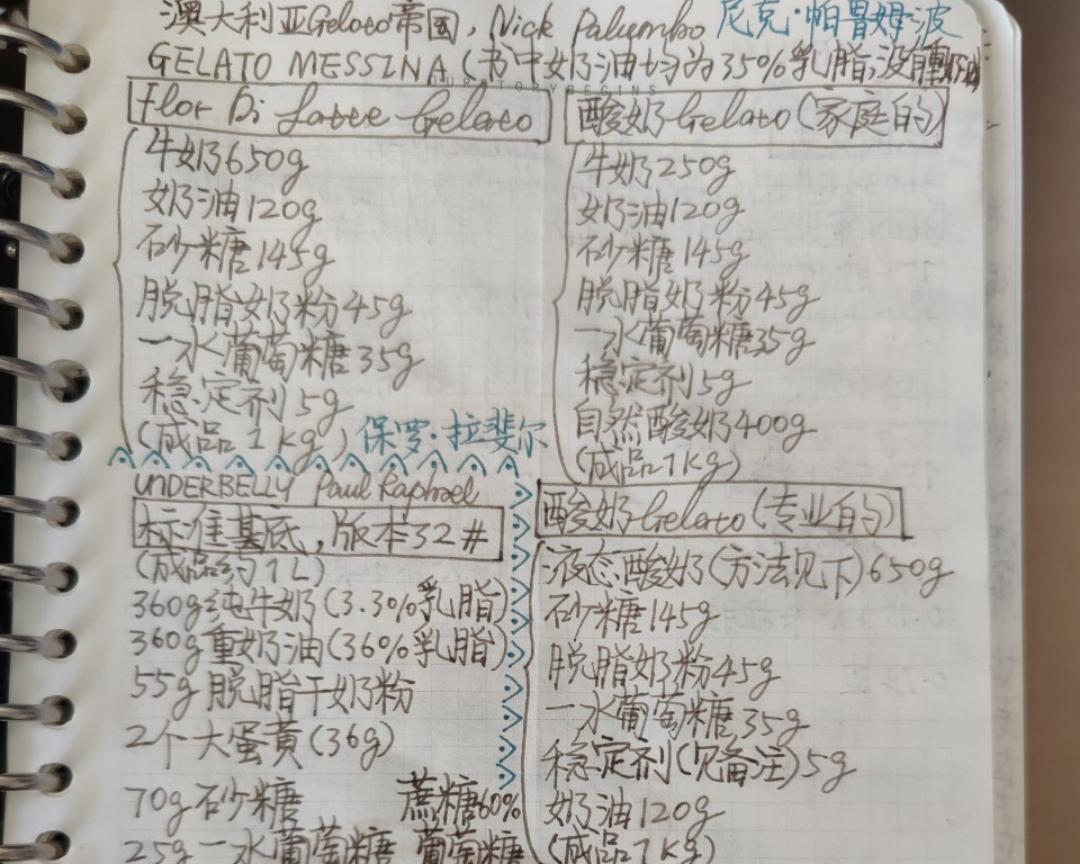 澳大利亚Gelato帝国，Nick Palumbo 尼克·帕鲁姆波
GELATO MESSINA（书中奶油均为35%乳脂，没
OURSTORYBEGINS
Fior Di Latte Gelato
牛奶650g
奶油120g
砂糖145g
脱脂奶粉45g
一水葡萄糖35g
稳定剂5g
(成品1kg)
酸奶Gelato(家庭的)
牛奶250g
奶油120g
砂糖145g
脱脂奶粉45g
一水葡萄糖35g
稳定剂5g
自然酸奶400g
(成品1kg)
保罗·拉斐尔
UNDERBELLY Paul Raphael
标准基底，版本32#
(成品约1L)
360g纯牛奶(3.3%乳脂)
360g重奶油(36%乳脂)
55g脱脂干奶粉
2个大蛋黄(36g)
70g砂糖 蔗糖60%
25g一水葡萄糖 葡萄糖
酸奶Gelato(专业的)
液态酸奶(方法见下)650g
砂糖145g
脱脂奶粉45g
一水葡萄糖35g
稳定剂(见备注)5g
奶油120g
(成品1kg)